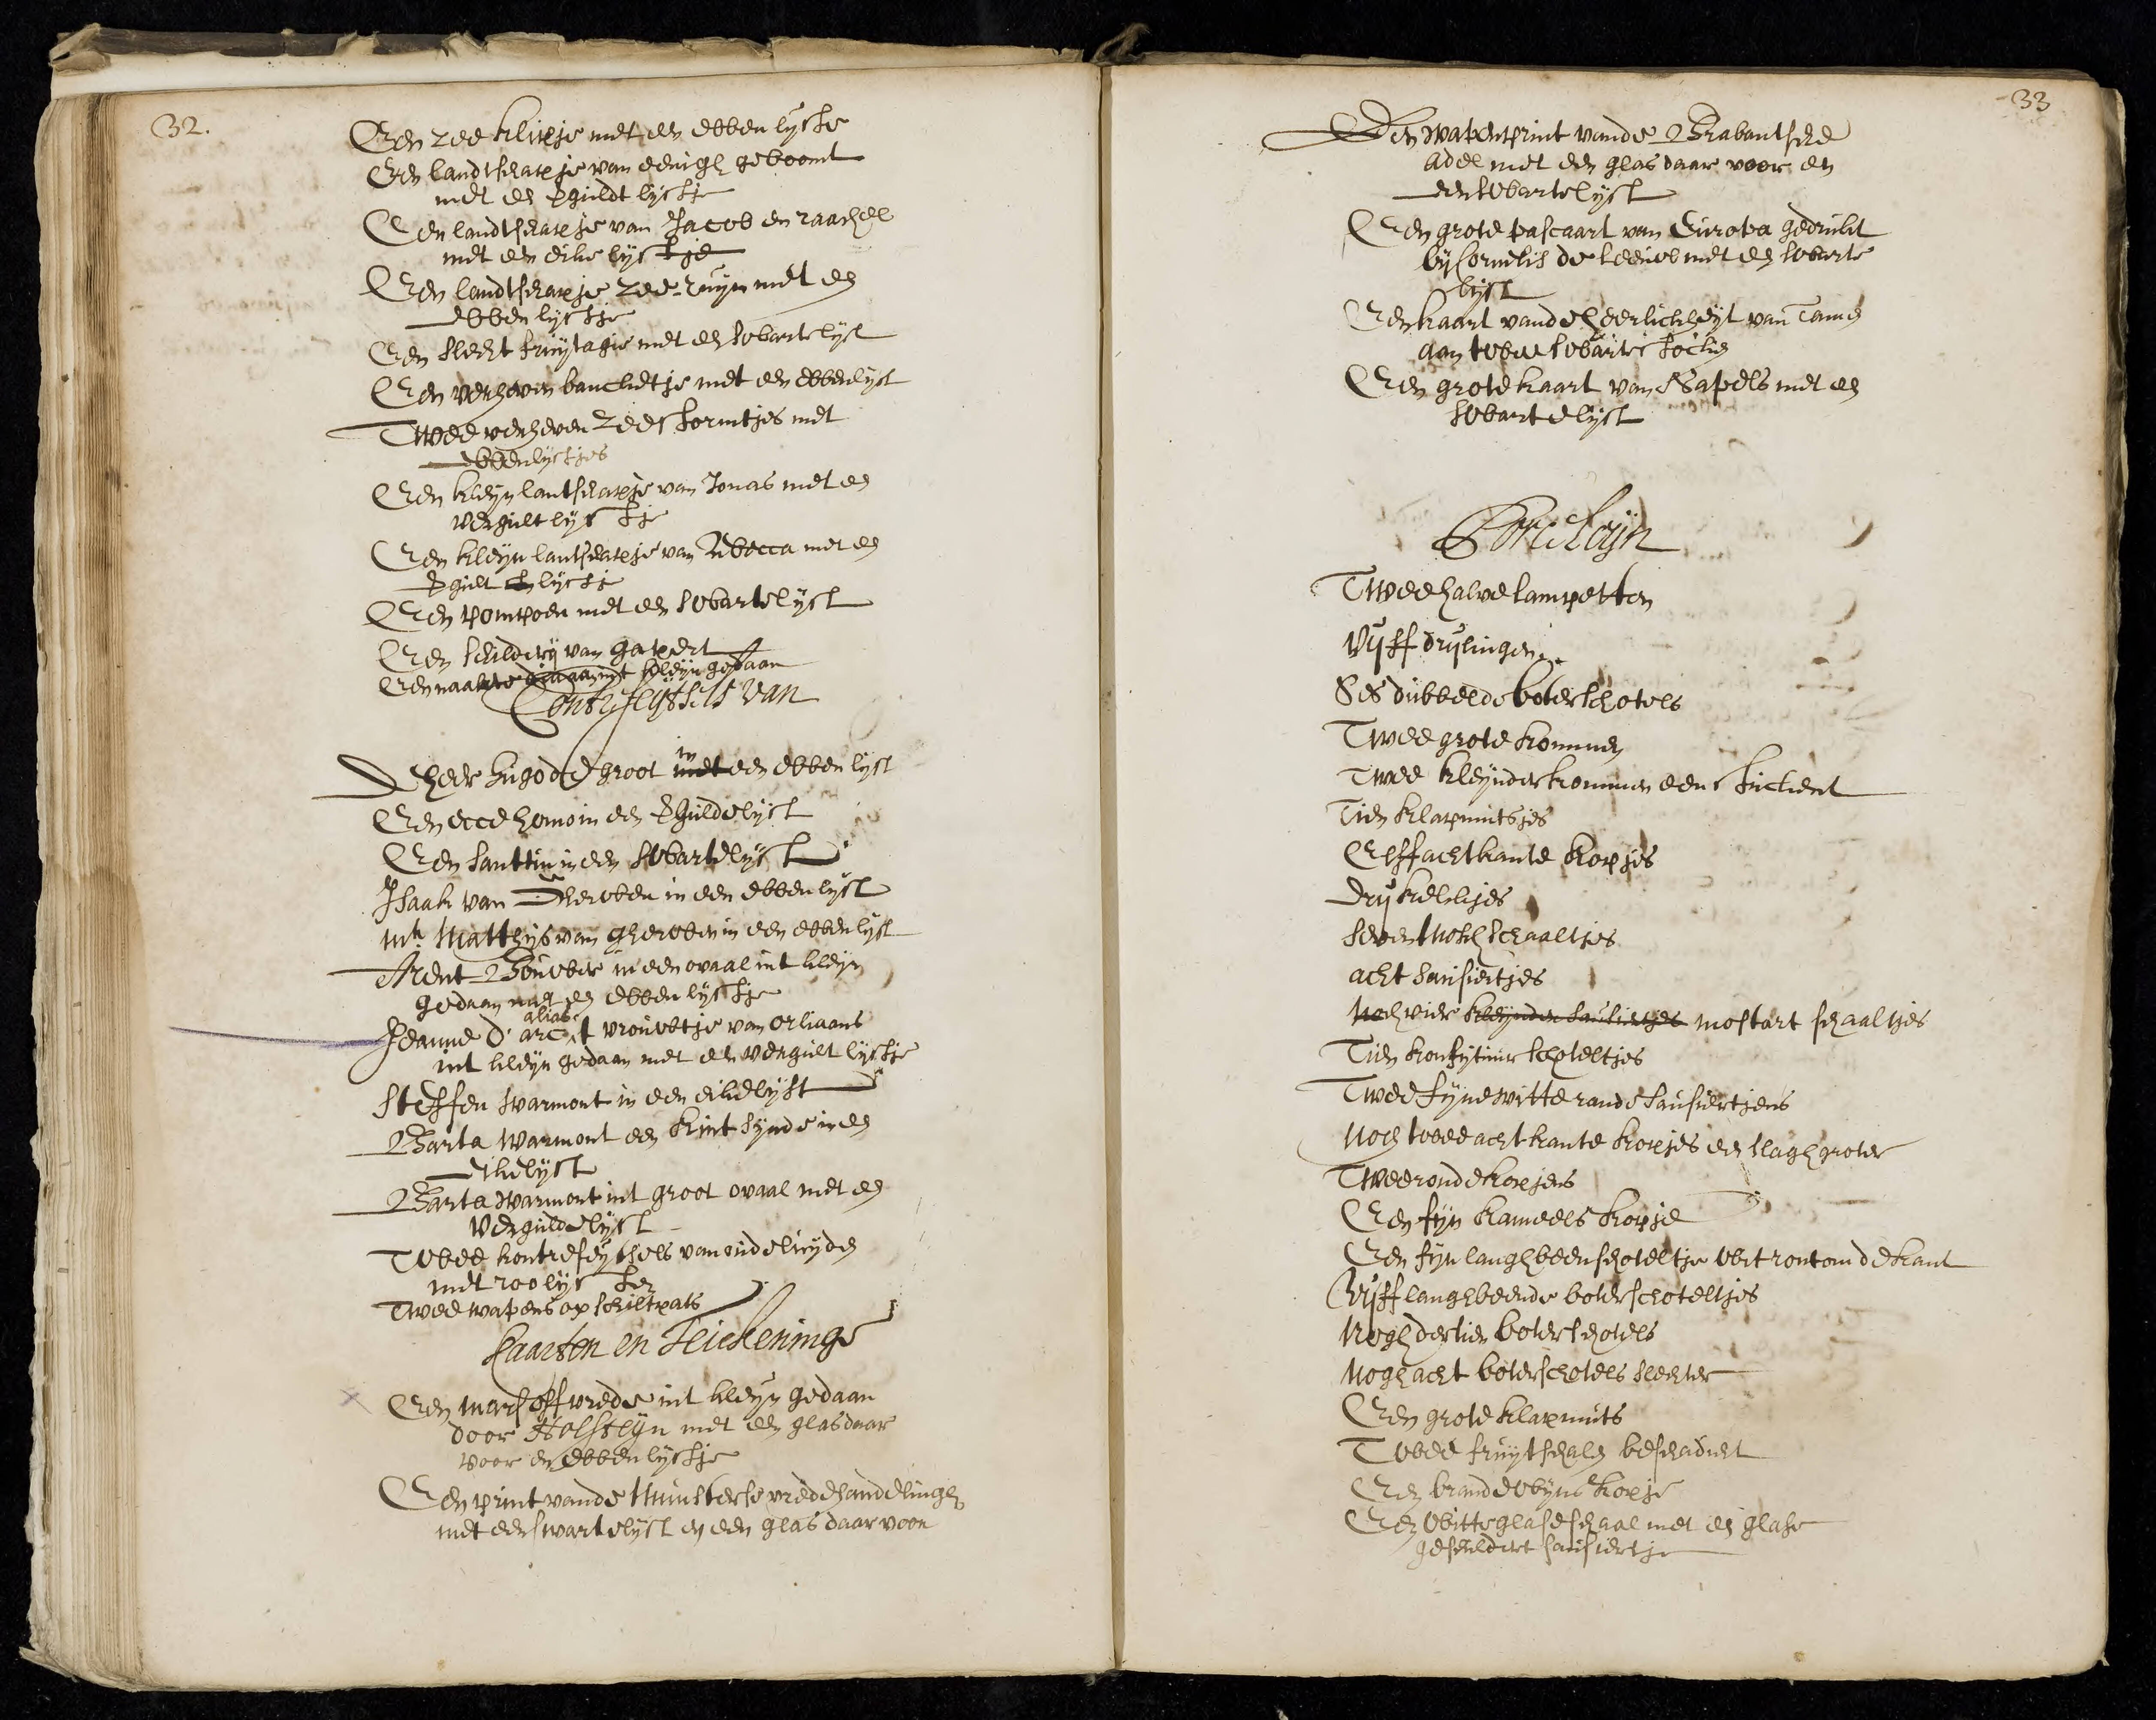 32.
Een zee klipje met een ebben lyste
Een landtschapje van eenigh geboomt
met een vguldt lystje
Een landtschapje van Jacob en raachel
met een eike lystje
Een landtschapje zee-ruyn met een
ebben lystje
Een slecht fruytagie met een swarte lyst
Een verheven bancketje met een ebben lyst
Twee verheven zee stormtjes met
ebben lystjes
Een kleyn lantschapje van Jonas met een
vergult lystje
Een kleyn lantschapje van Rebecca met een
vgult lystje
Een pompoen met een swarte lyst
Een schildery van gapert
Een naakte int kleyn gedaan
Contrefeijtsels van
De heer Hugo de groot in met een ebben lyst
Een ecce homo in een vgulde lyst
Een santtin in een swarte lyst
Isaak van Gherwen in een ebben lyst
Mr. Matthijs van gherwen in een ebben lyst
Arent Bouwer in een ovaal int kleyn
gedaan met een ebben lystje
alias
Jeanne d'arc t vrouwtje van orliaans
int kleyn gedaan met een vergult lystje
Steffen warmont in een eike lyst
Barta warmont een kint synde in een
eike lyst
Barta warmont int groot ovaal met een
vergulde lyst
Twee kontrefeytsels van oude luyden
met roo lysten
Twee wapens op schiltpats
Kaarten en Teickeninge
Een marsch off vrede int kleyn gedaan
door Holsteyn met een glas daar
voor en ebben lystje
Een print vande Munsterse vrede handelingh
met een swarte lyst en een glas daar voor
33
Een wapenprint vande Brabantsche
adel met een glas daar voor en
een swarte lyst
Een grote pascaart van Europa gedrukt
by Cornelis de Leeuw met een swarte
lyst
Een kaart vande heerlickheyt van
aan twee swarte stocken
Een grote kaart van Napels met een
swarte lyst
Porceleijn
Twee halve lampetten
Vyff drylingen
Ses dubbelde boterschotels
Twee grote kommen
Twee kleynder kommen een stuckent
Tien klapmutsjes
Elff achtkante kopjes
Dry kelkjes
Seven noch schaaltjes
acht sausiertjes
Noch vier kleynder sausiertjes mostart schaaltjes
Tien konfytuur schoteltjes
Twee fyne witte rande sausiertjens
Noch twee achtkante kopjes een slagh groter
Twee ronde kopjens
Een fyn kameels kopje
Een fyn langhbeen schoteltje wit rontom de kant
Vyff langhbeende boter schoteltjes
Nogh dertien boter schotels
Nogh acht boterschotels slechter
Een grote klapmuts
Twee fruytschalen beschadicht
Een brandewyns kopje
Een witte glase schaal met een glase
geschildert sausiertje